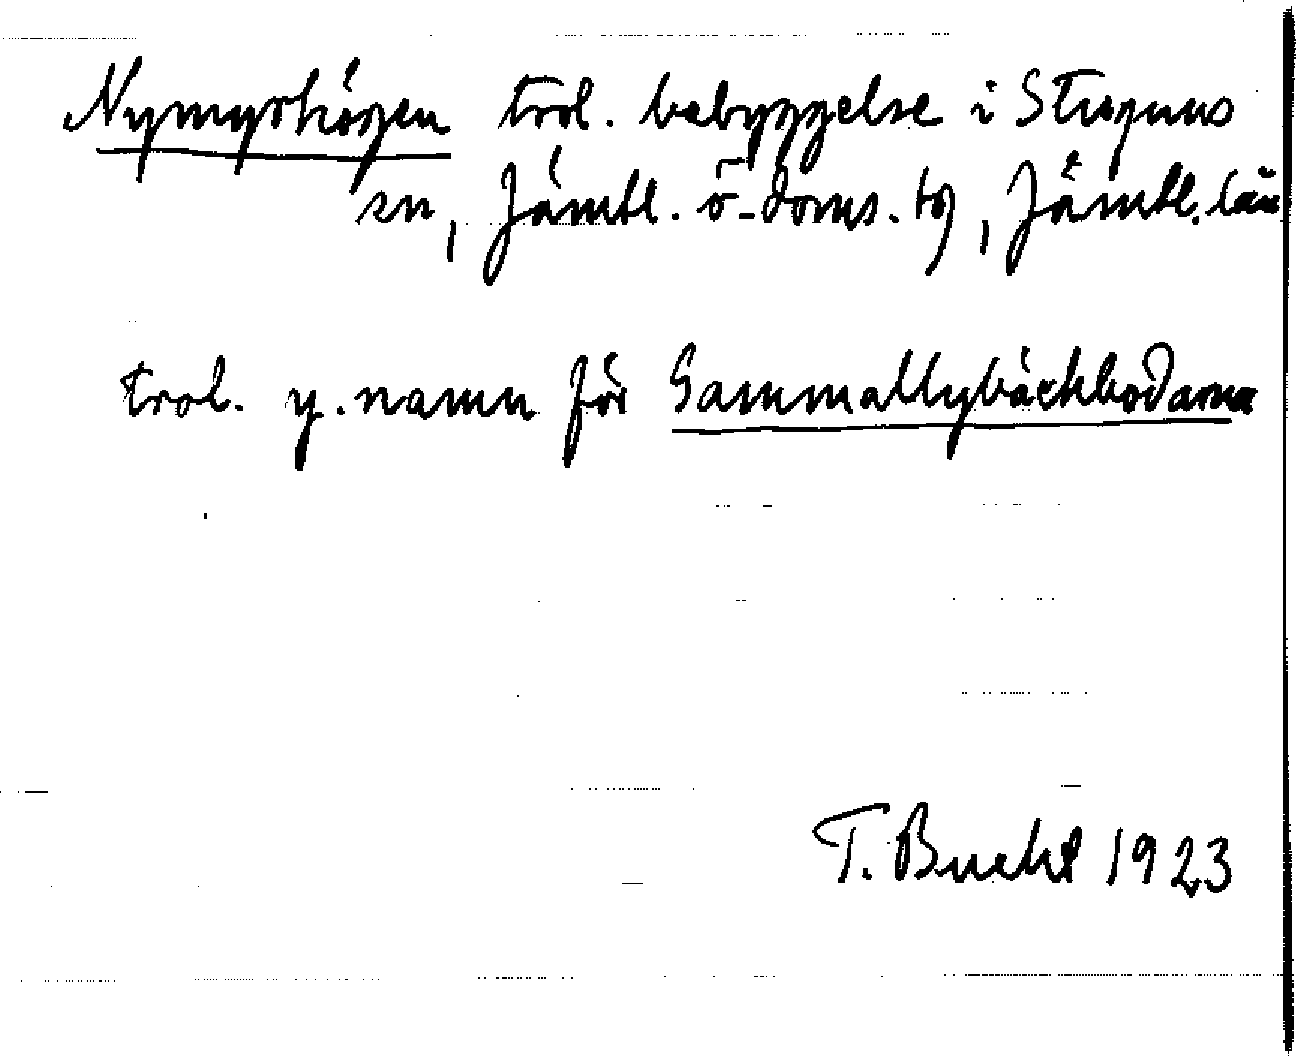 Nymyrhögen trol. bebyggelse i Stuguns
sn, Jämtl. ö-doms. tg, Jämtl. län
trol. y. namn för Gammallybäckbodarna
T. Bucht 1923